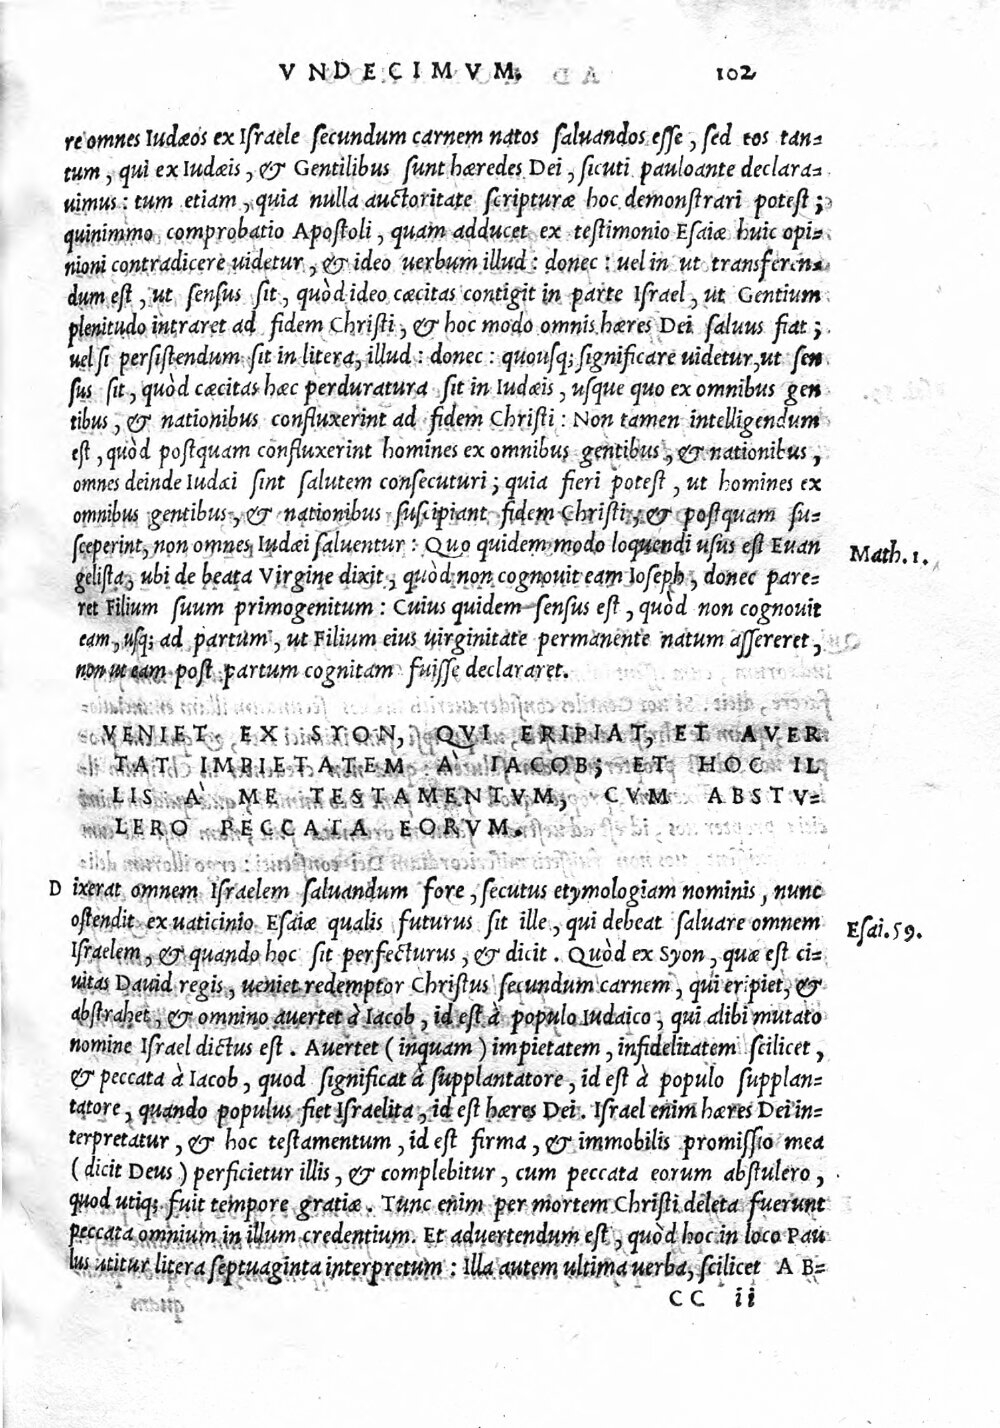 VNDECIMVM. 102
re omnes Iudæos ex Israele secundum carnem natos saluandos esse, sed eos tan=
tum, qui ex Iudæis, & Gentilibus sunt hæredes Dei, sicuti pauloante declara=
uimus: tum etiam, quia nulla auctoritate scripturæ hoc demonstrari potest;
quinimmo comprobatio Apostoli, quam adducet ex testimonio Esaiæ huic opi=
nioni contradicere uidetur, & ideo uerbum illud: donec: uel in ut transferen=
dum est, ut sensus sit, quòd ideo cæcitas contigit in parte Israel, ut Gentium
plenitudo intraret ad fidem Christi, & hoc modo omnis hæres Dei saluus fiat;
uel si persistendum sit in litera, illud: donec: quousq; significare uidetur, ut sen
sus sit, quòd cæcitas hæc perduratura sit in Iudæis, usque quo ex omnibus gen
tibus, & nationibus confluxerint ad fidem Christi: Non tamen intelligendum
est, quòd postquam confluxerint homines ex omnibus gentibus, & nationibus,
omnes deinde Iudæi sint salutem consecuturi; quia fieri potest, ut homines ex
omnibus gentibus, & nationibus suscipiant fidem Christi, & postquam su=
sceperint, non omnes Iudæi saluentur: Quo quidem modo loquendi usus est Euan
gelista, ubi de beata Virgine dixit, quòd non cognouit eam Ioseph, donec pare=
ret Filium suum primogenitum: Cuius quidem sensus est, quòd non cognouit
eam, usq; ad partum, ut Filium eius uirginitate permanente natum assereret,
non ut eam post partum cognitam fuisse declararet.
Math.1.
VENIET EX SYON, QVI ERIPIAT, ET AVER
TAT IMPIETATEM À IACOB; ET HOC IL
LIS À ME TESTAMENTVM, CVM ABSTV=
LERO PECCATA EORVM.
Dixerat omnem Israelem saluandum fore, secutus etymologiam nominis, nunc
ostendit ex uaticinio Esaiæ qualis futurus sit ille, qui debeat saluare omnem
Israelem, & quando hoc sit perfecturus, & dicit. Quòd ex Syon, quæ est ci=
uitas Dauid regis, ueniet redemptor Christus secundum carnem, qui eripiet, &
abstrahet, & omnino auertet à Iacob, id est à populo Iudaico, qui alibi mutato
nomine Israel dictus est. Auertet (inquam) impietatem, infidelitatem scilicet,
& peccata à Iacob, quod significat à supplantatore, id est à populo supplan=
tatore, quando populus fiet Israelita, id est hæres Dei. Israel enim hæres Dei in=
terpretatur, & hoc testamentum, id est firma, & immobilis promissio mea
(dicit Deus) perficietur illis, & complebitur, cum peccata eorum abstulero,
quod utiq; fuit tempore gratiæ. Tunc enim per mortem Christi deleta fuerunt
peccata omnium in illum credentium. Et aduertendum est, quòd hoc in loco Pau
lus utitur litera septuaginta interpretum: Illa autem ultima uerba, scilicet AB=
Esai.59.
CC ii